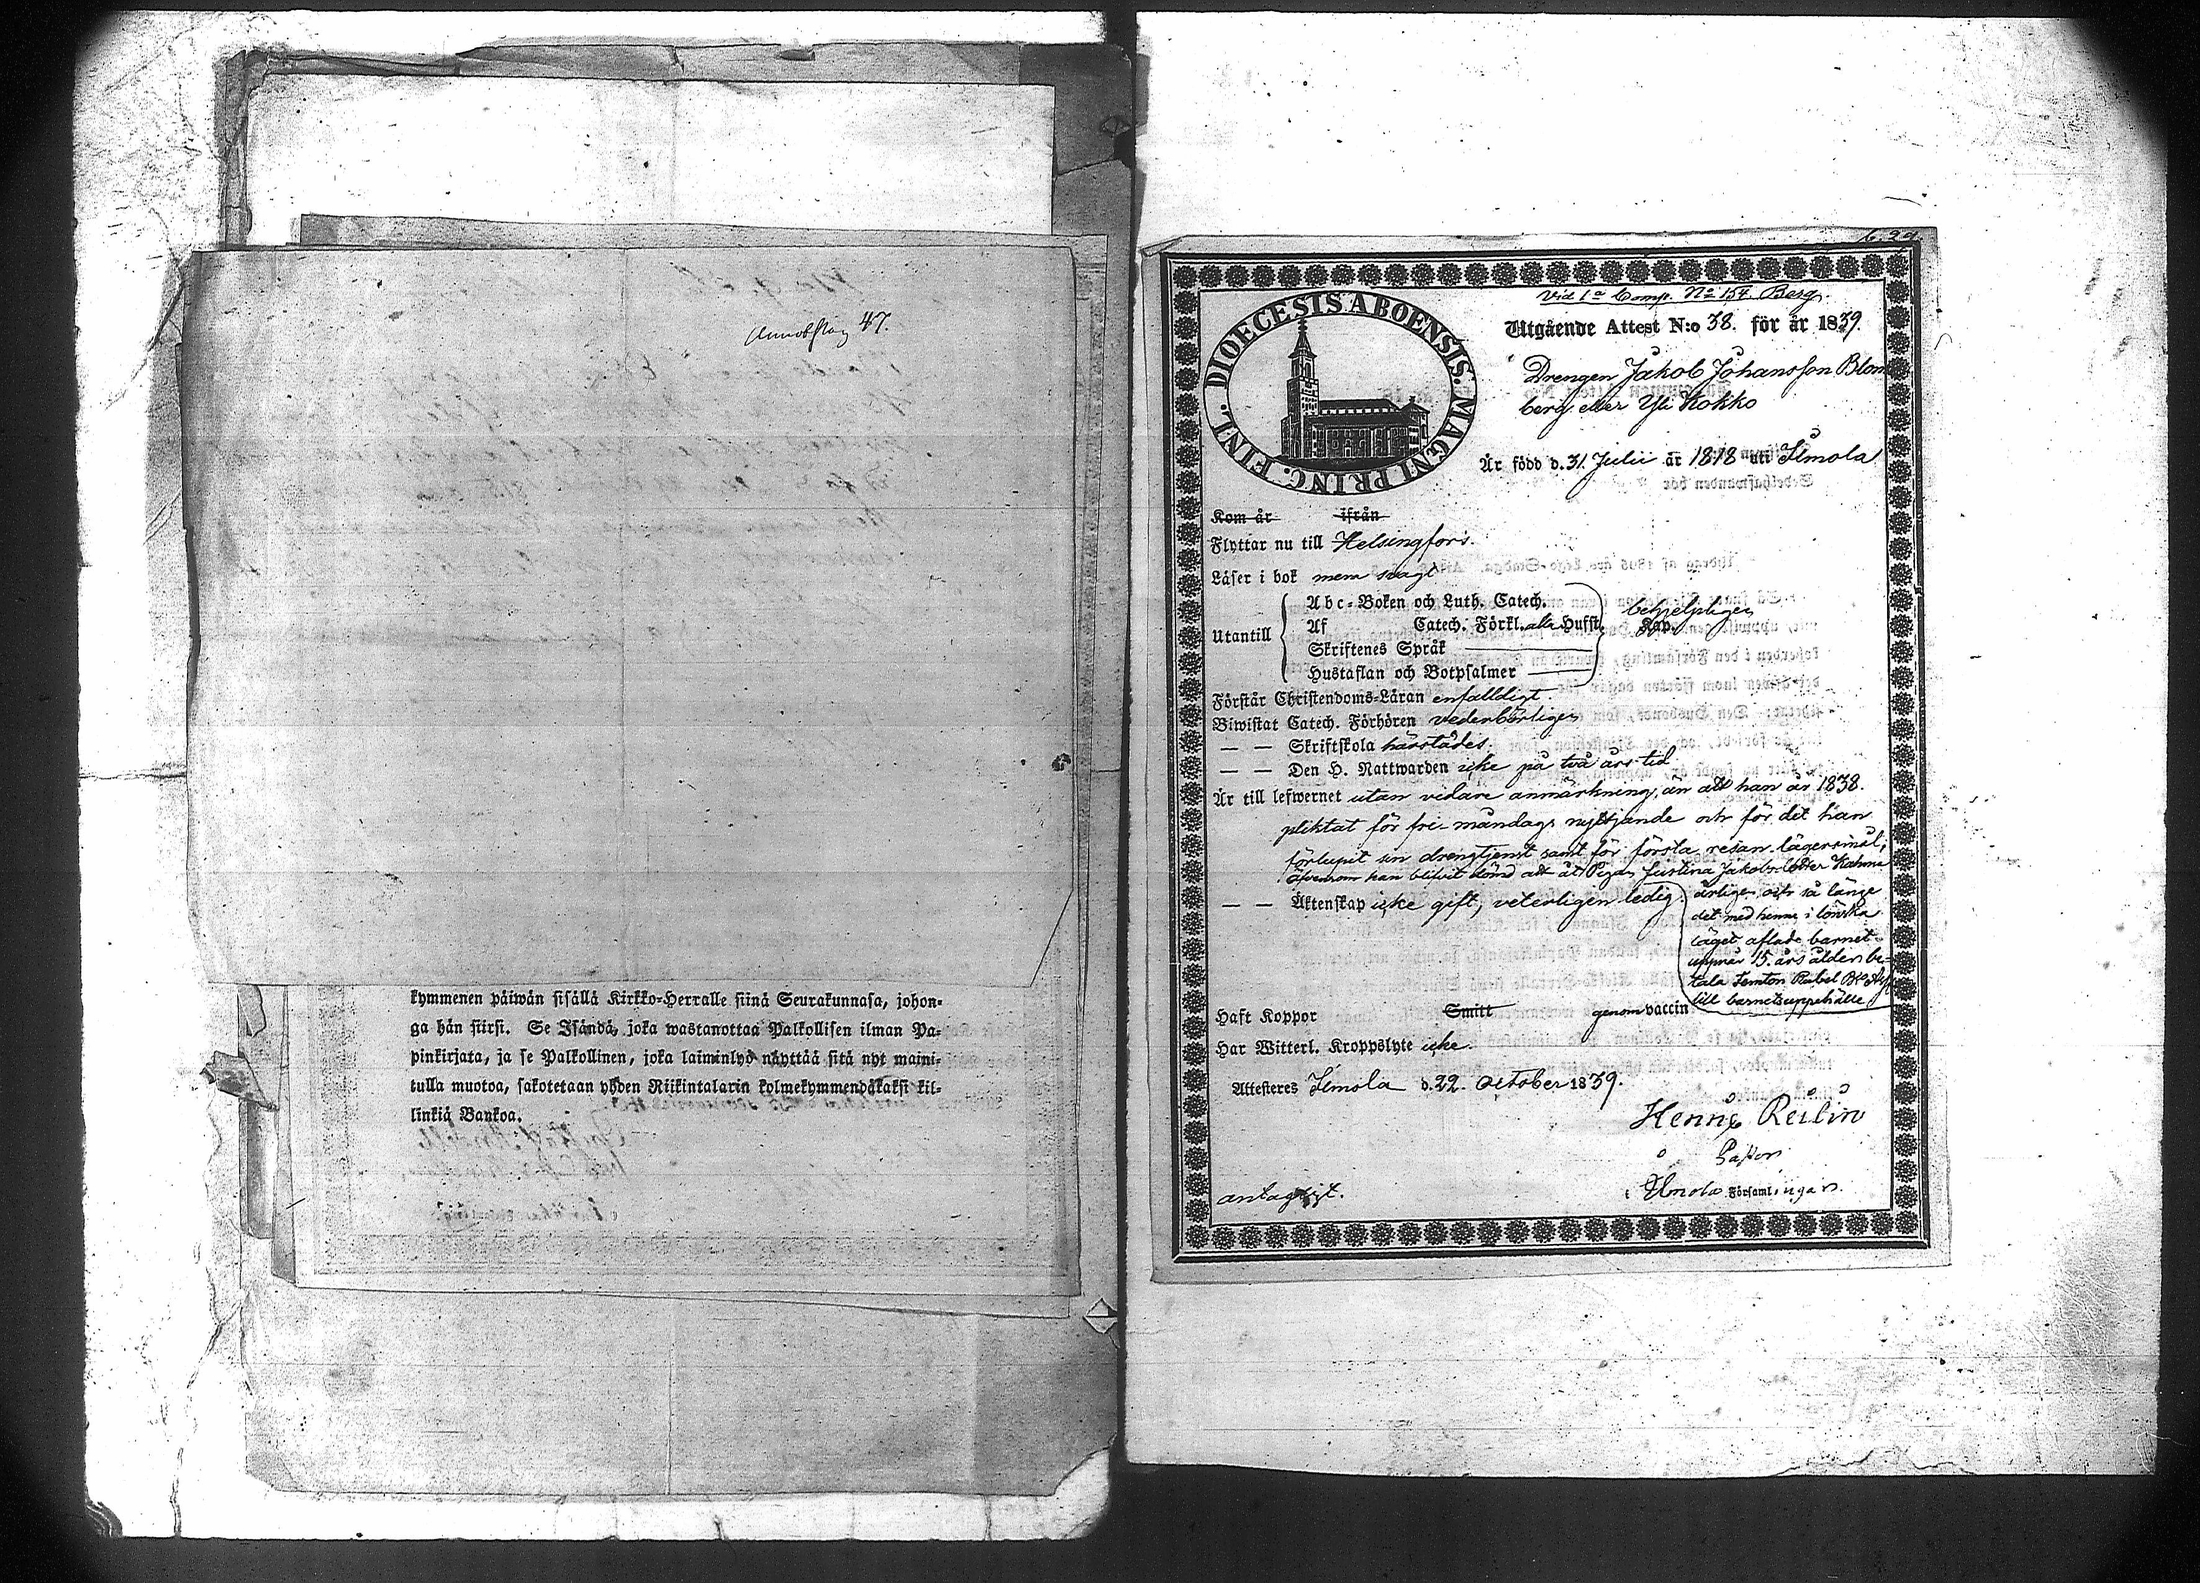 47.
kymmenen päiwän sisällä Kirkko-Herralle siinä Seurakunnasa, johon-
ga hän siirsi. Se Isändä, joka wastanottaa Palkollisen ilman Pa-
pinkirjata, ja se Palkollinen, joka laiminlyö näyttää sitä nyt maini-
tulla muotoa, sakotetaan yhden Riikintalarin kolmekymmendäkaksi kil-
linkiä Bankoa.
b. 29.
Vid 1a Comp. No 154 Berg.
DIOECESIS ABOENSIS. MAGNI PRINC. FINL.
Utgående Attest N:o 38. för år 1839.
Drengen Jakob Johansson Blom
berg eller Yli Kokko
Är född d. 31 Julii år 1818 uti Ilmola
Kom år ifrån
Flyttar nu till Helsingfors.
Läser i bok men svagt
Utantill
Abc-Boken och Luth. Catech.
Af Catech. Förkl. alla Hufst.
Skriftenes Språk
Hustaflan och Botpsalmer
behjelpligen
Kap.
Förstår Christendoms-Läran enfalldigt
Biwistat Catech. Förhören vederbörligen
— — Skriftskola härstädes.
— — Den H. Nattwarden icke på två års tid
Är till lefwernet utan vidare anmärkning, än att han år 1838.
pliktat för fri-måndags nyttjande och för det han
förlupit sin drengtjenst samt för första resan lägersmål;
äfvensom han blifvit dömd att åt Pigan Justina Jakobsdotter
årligen och så länge
det med henne i lönska
läget aflade barnet
uppnår 15. års ålder be-
tala femton Rubel
till barnets uppehälle
— — Äktenskap icke gift, veterligen ledig.
Haft Koppor Smitt genom vaccin
Har Witterl. Kroppslyte icke.
Attesteres Ilmola d. 22. October 1839.
Henric Reilin
Pastor
i Ilmola Församlingar.
antagligt.